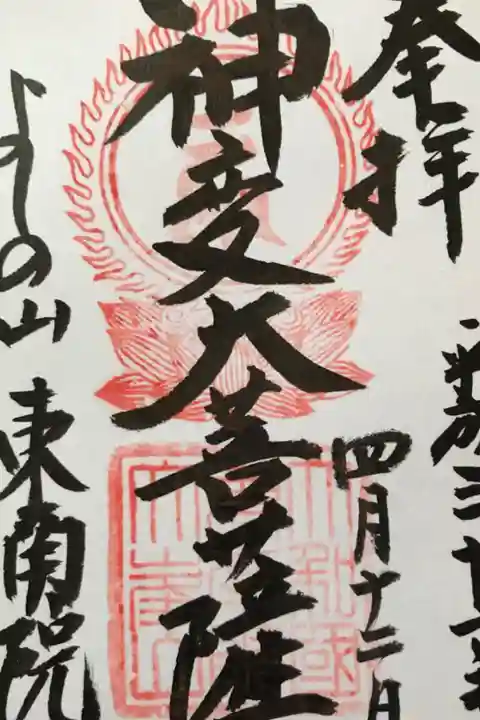 奉拝
四月十二日
神変大菩薩
よしの山 東南院